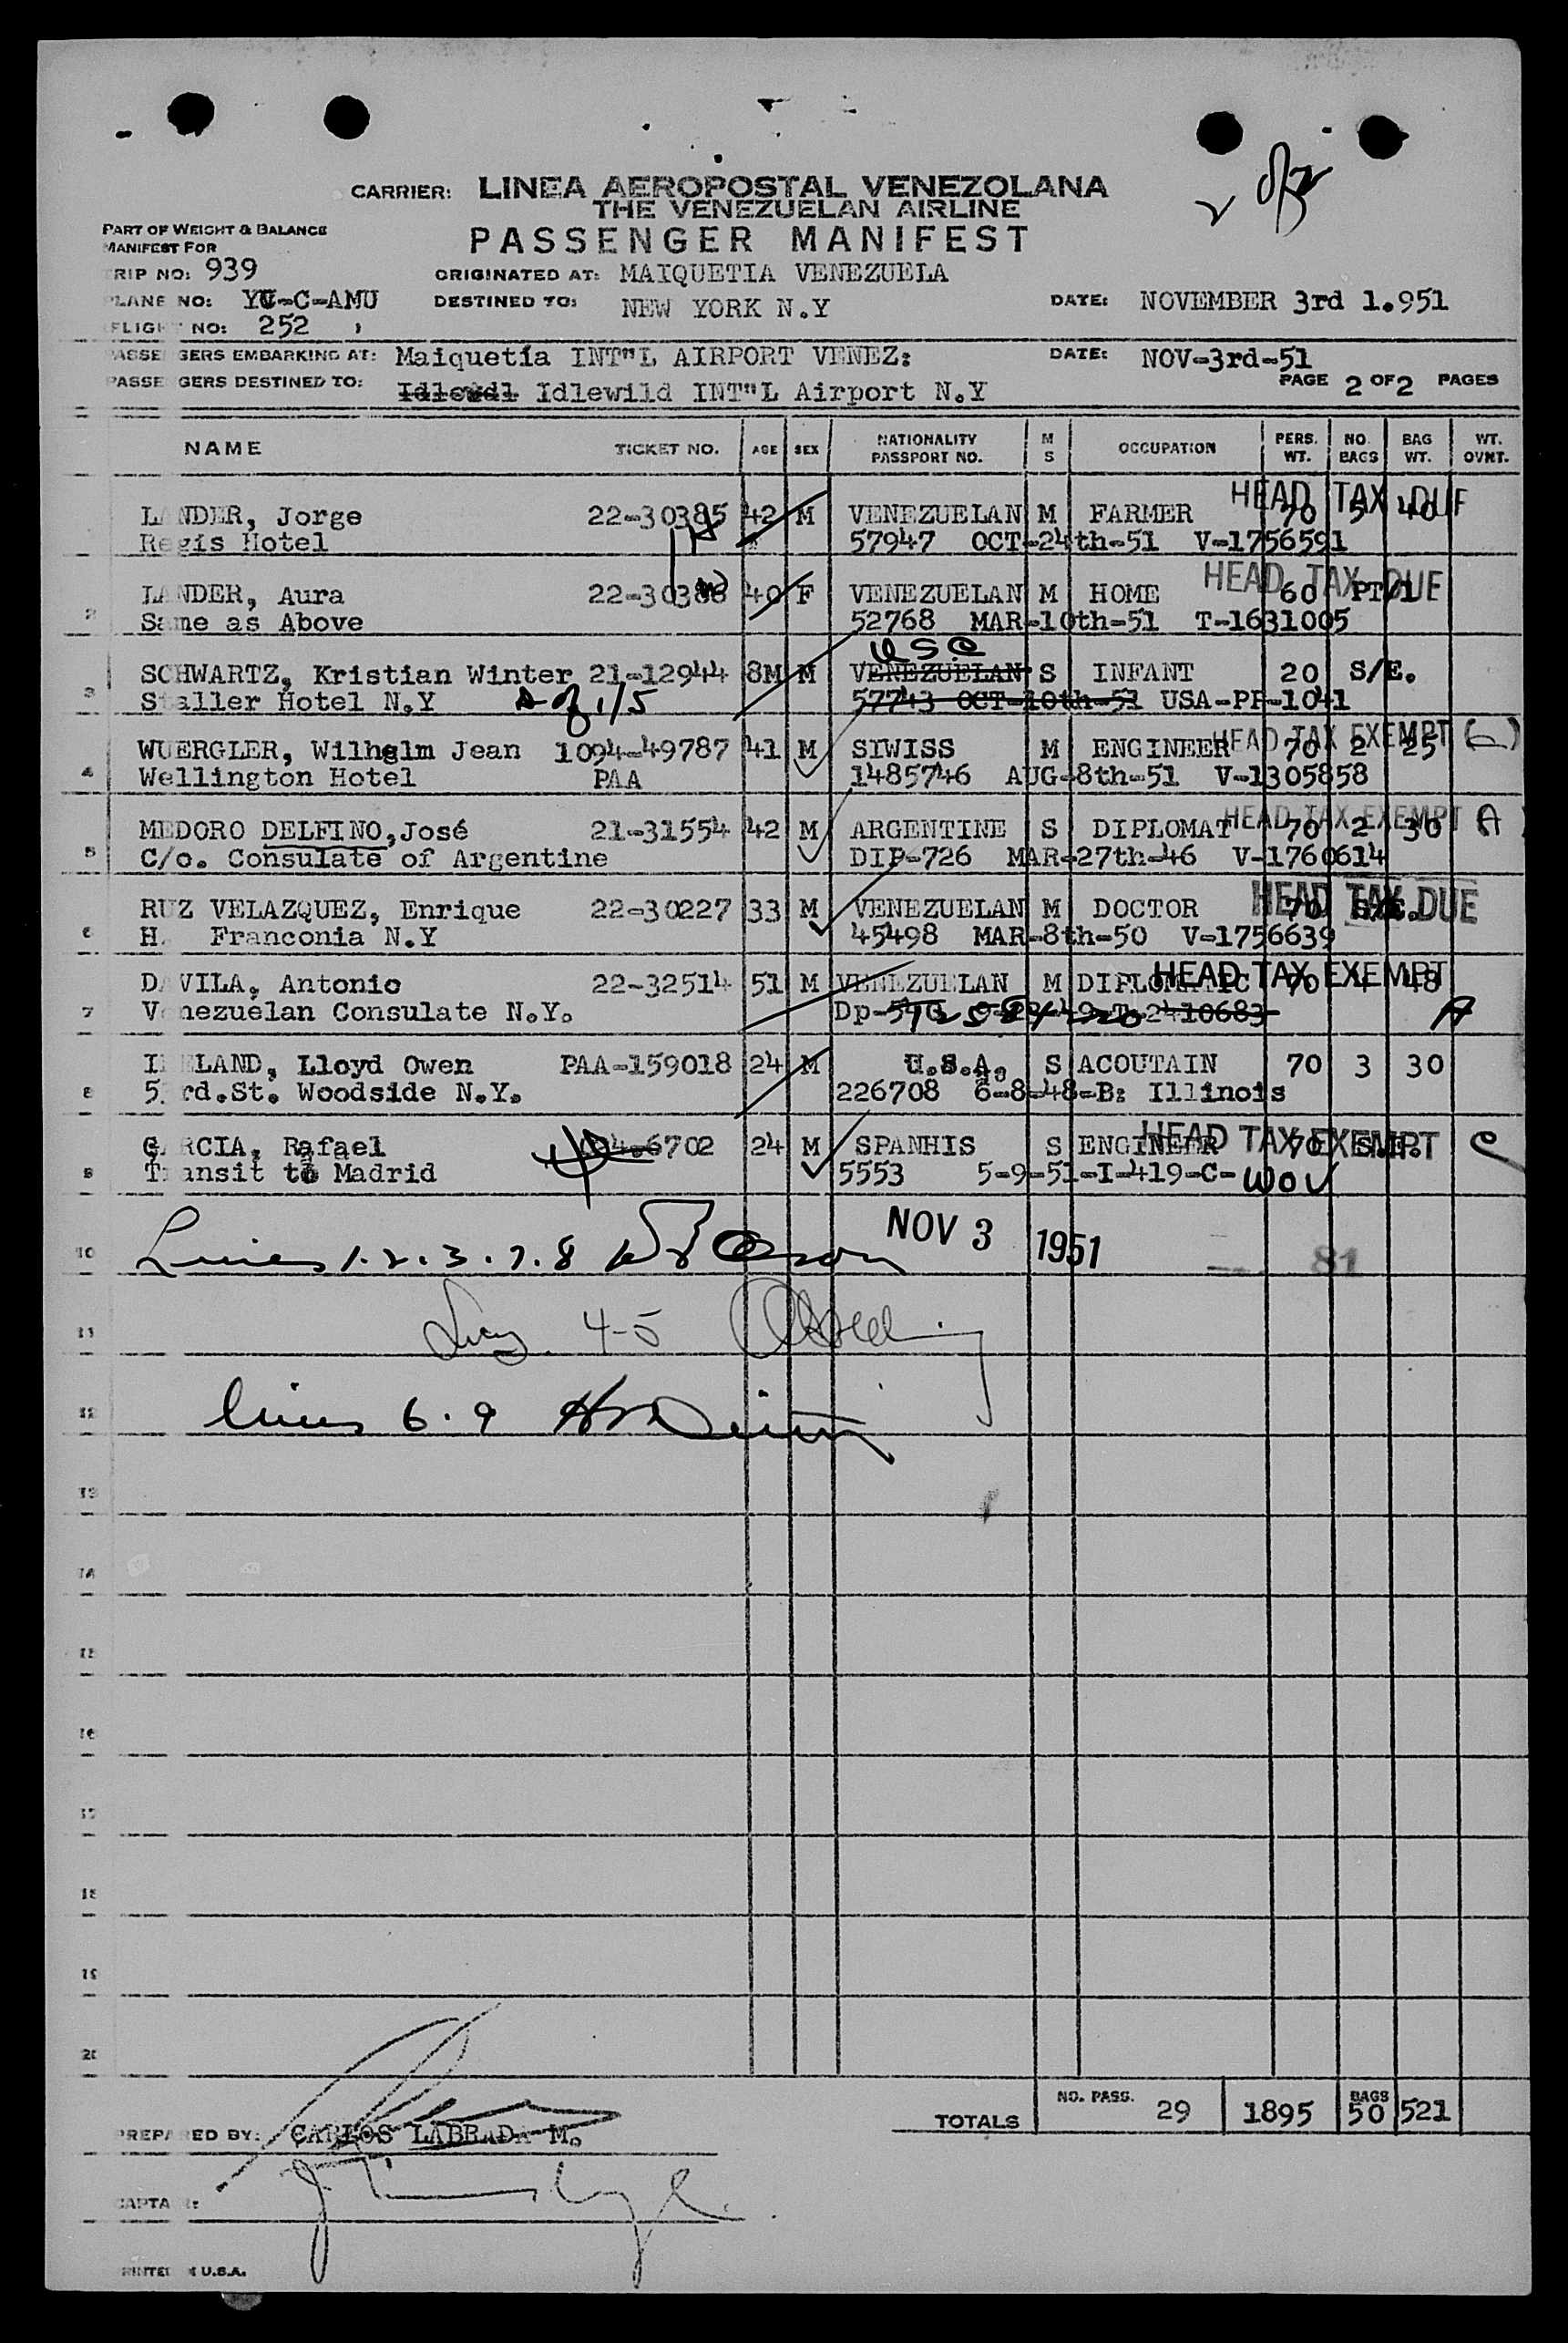 CARRIER: LINEA AEROPOSTAL VENEZOLANA
THE VENEZUELAN AIRLINE
PASSENGER MANIFEST
PART OF WEIGHT & BALANCE
MANIFEST FOR
RIP NO: 939 ORIGINATED AT: MAIQUETIA VENEZUELA
LANE NO: YV-C-AMU DESTINED TO: NEW YORK N.Y DATE: NOVEMBER 3rd 1.951
FLIGH NO: 252
ASSE GERS EMBARKING AT: Maiquetía INT"L AIRPORT VENEZ: DATE: NOV-3rd-51
PASSE GERS DESTINED TO: Idlewild INT"L Airport N.Y PAGE 2 OF 2 PAGES
NAME TICKET NO. AGE SEX NATIONALITY PASSPORT NO. M S OCCUPATION PERS. WT. NO. BAGS BAG WT. WT. OVNT.
L NDER, Jorge 22-30385 42 M VENEZUELAN M FARMER 70 5 40 HEAD TAX DUE
Regis Hotel 57947 OCT-24th-51 V-1756591
2 LANDER, Aura 22-30386 40 F VENEZUELAN M HOME 60 PT/1 HEAD TAX DUE
Same as Above 52768 MAR-10th-51 T-1631005
USC
3 SCHWARTZ, Kristian Winter 21-12944 8M M VENEZUELAN S INFANT 20 S/E.
S aller Hotel N.Y 1/5 57743 OCT-10th-51 USA-PP-1041
4 WUERGLER, Wilhelm Jean 1094-49787 41 M SIWISS M ENGINEER 70 2 25 HEAD TAX EXEMPT
Wellington Hotel PAA 1485746 AUG-8th-51 V-1305858
5 MEDORO DELFINO, José 21-31554 42 M ARGENTINE S DIPLOMAT 70 2 30 HEAD TAX EXEMPT A
C/o. Consulate of Argentine DIP-726 MAR-27th-46 V-1760614
6 RUZ VELAZQUEZ, Enrique 22-30227 33 M VENEZUELAN M DOCTOR 70 HEAD TAX DUE
H. Franconia N.Y 45498 MAR-8th-50 V-1756639
7 D VILA, Antonio 22-32514 51 M VENEZUELAN M DIPLOMATIC 70 48 HEAD TAX EXEMPT
V nezuelan Consulate N.Y. A
8 I LAND, Lloyd Owen PAA-159018 24 M U.S.A. S ACOUTAIN 70 3 30
5 rd.St. Woodside N.Y. 226708 6-8-48-B: Illinois
9 GARCIA, Rafael 6702 24 M SPANHIS S ENGINEER 70 HEAD TAX EXEMPT C
T ansit to Madrid 5553 5-9-51-I-419-C- WOV
10 Lines 1.2.3.7.8 NOV 3 1951 81
11 4-5
12 lines 6.9
13
14
15
16
17
18
19
20
TOTALS NO. PASS. 29 1895 BAGS 50 521
PREPA ED BY: CARLOS LABRADA M.
CAPTA
RINTE U.S.A.